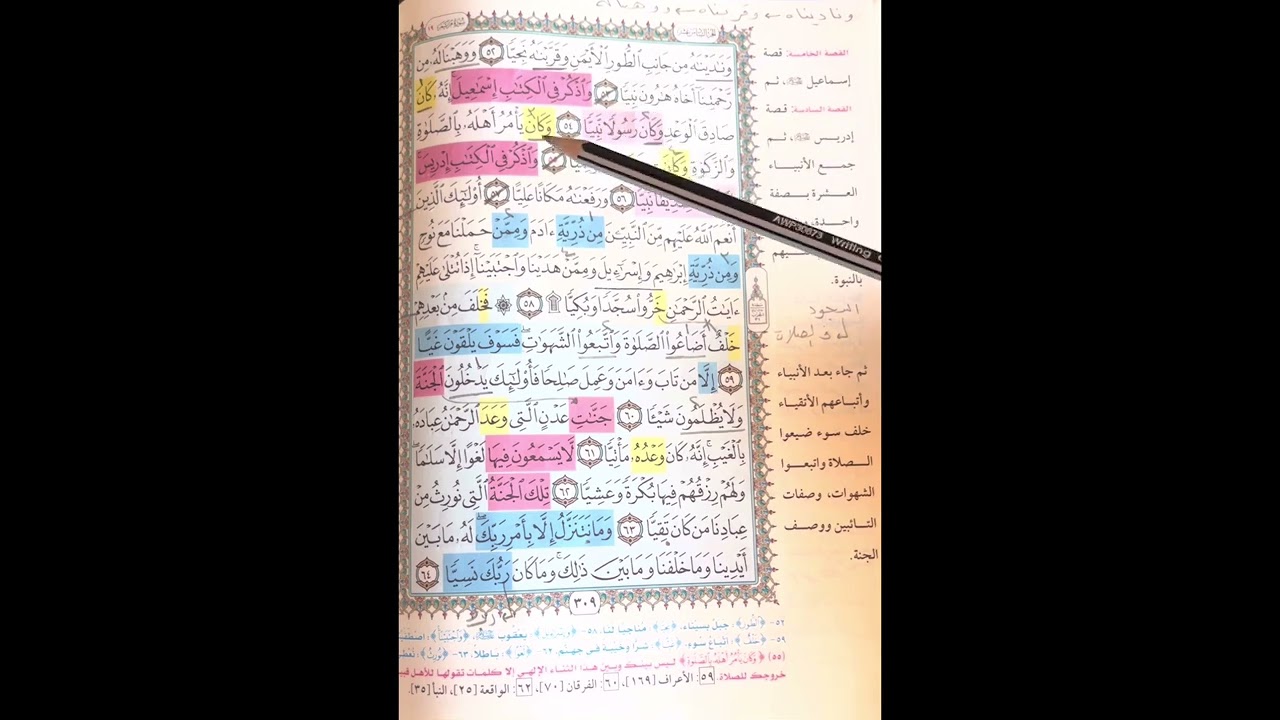 وناديناه وقربناه ووهبنا له
سورة مريم ١٩
وَنَٰدَيْنَٰهُ مِن جَانِبِ ٱلطُّورِ ٱلْأَيْمَنِ وَقَرَّبْنَٰهُ نَجِيًّا ٥٢ وَوَهَبْنَا لَهُۥ مِن
رَّحْمَتِنَآ أَخَاهُ هَٰرُونَ نَبِيًّا ٥٣ وَٱذْكُرْ فِى ٱلْكِتَٰبِ إِسْمَٰعِيلَ إِنَّهُۥ كَانَ
صَادِقَ ٱلْوَعْدِ وَكَانَ رَسُولًا نَّبِيًّا ٥٤ وَكَانَ يَأْمُرُ أَهْلَهُۥ بِٱلصَّلَوٰةِ
وَٱلزَّكَوٰةِ وَكَانَ وَٱذْكُرْ فِى ٱلْكِتَٰبِ إِدْرِيسَ
صِدِّيقًا نَّبِيًّا ٥٦ وَرَفَعْنَٰهُ مَكَانًا عَلِيًّا ٥٧ أُو۟لَٰٓئِكَ ٱلَّذِينَ
أَنْعَمَ ٱللَّهُ عَلَيْهِم مِّنَ ٱلنَّبِيِّۦنَ مِن ذُرِّيَّةِ ءَادَمَ وَمِمَّنْ حَمَلْنَا مَعَ نُوحٍ
وَمِن ذُرِّيَّةِ إِبْرَٰهِيمَ وَإِسْرَٰٓءِيلَ وَمِمَّنْ هَدَيْنَا وَٱجْتَبَيْنَآ إِذَا تُتْلَىٰ عَلَيْهِمْ
ءَايَٰتُ ٱلرَّحْمَٰنِ خَرُّوا۟ سُجَّدًا وَبُكِيًّا ۩ ٥٨ ۞ فَخَلَفَ مِنۢ بَعْدِهِمْ
خَلْفٌ أَضَاعُوا۟ ٱلصَّلَوٰةَ وَٱتَّبَعُوا۟ ٱلشَّهَوَٰتِ فَسَوْفَ يَلْقَوْنَ غَيًّا
٥٩ إِلَّا مَن تَابَ وَءَامَنَ وَعَمِلَ صَٰلِحًا فَأُو۟لَٰٓئِكَ يَدْخُلُونَ ٱلْجَنَّةَ
وَلَا يُظْلَمُونَ شَيْـًٔا ٦٠ جَنَّٰتِ عَدْنٍ ٱلَّتِى وَعَدَ ٱلرَّحْمَٰنُ عِبَادَهُۥ
بِٱلْغَيْبِ إِنَّهُۥ كَانَ وَعْدُهُۥ مَأْتِيًّا ٦١ لَّا يَسْمَعُونَ فِيهَا لَغْوًا إِلَّا سَلَٰمًا
وَلَهُمْ رِزْقُهُمْ فِيهَا بُكْرَةً وَعَشِيًّا ٦٢ تِلْكَ ٱلْجَنَّةُ ٱلَّتِى نُورِثُ مِنْ
عِبَادِنَا مَن كَانَ تَقِيًّا ٦٣ وَمَا نَتَنَزَّلُ إِلَّا بِأَمْرِ رَبِّكَ لَهُۥ مَا بَيْنَ
أَيْدِينَا وَمَا خَلْفَنَا وَمَا بَيْنَ ذَٰلِكَ وَمَا كَانَ رَبُّكَ نَسِيًّا ٦٤
٣٠٩
القصة الخامسة: قصة
إسماعيل ﷺ، ثم
القصة السادسة: قصة
إدريس ﷺ، ثم
جمع الأنبياء
العشرة بصفة
واحدة،
بالنبوة.
السجود
ثم جاء بعد الأنبياء
وأتباعهم الأتقياء
خلف سوء ضيعوا
الصلاة واتبعوا
الشهوات، وصفات
التائبين ووصف
الجنة.
AWP30673 Writing
٥٢- ﴿الطُّورِ﴾: جبل بسيناء، مناجيا لنا، ٥٨- يعقوب ﷺ،
٥٩- ﴿خَلْفٌ﴾: أتباع سوء، شرا وخيبة في جهنم، ٦٢- ﴿لَغْوًا﴾: باطلا، ٦٣- ﴿نُورِثُ﴾:
(٥٥) ﴿وَكَانَ يَأْمُرُ أَهْلَهُ بِالصَّلَاةِ﴾ ليس بينك وبين هذا الثناء الإلهي إلا كلمات تقولها للأهل
خروجك للصلاة. ٥٩: الأعراف [١٦٩]، ٦٠: الفرقان [٧٠]، ٦٢: الواقعة [٢٥]، النبأ [٣٥].